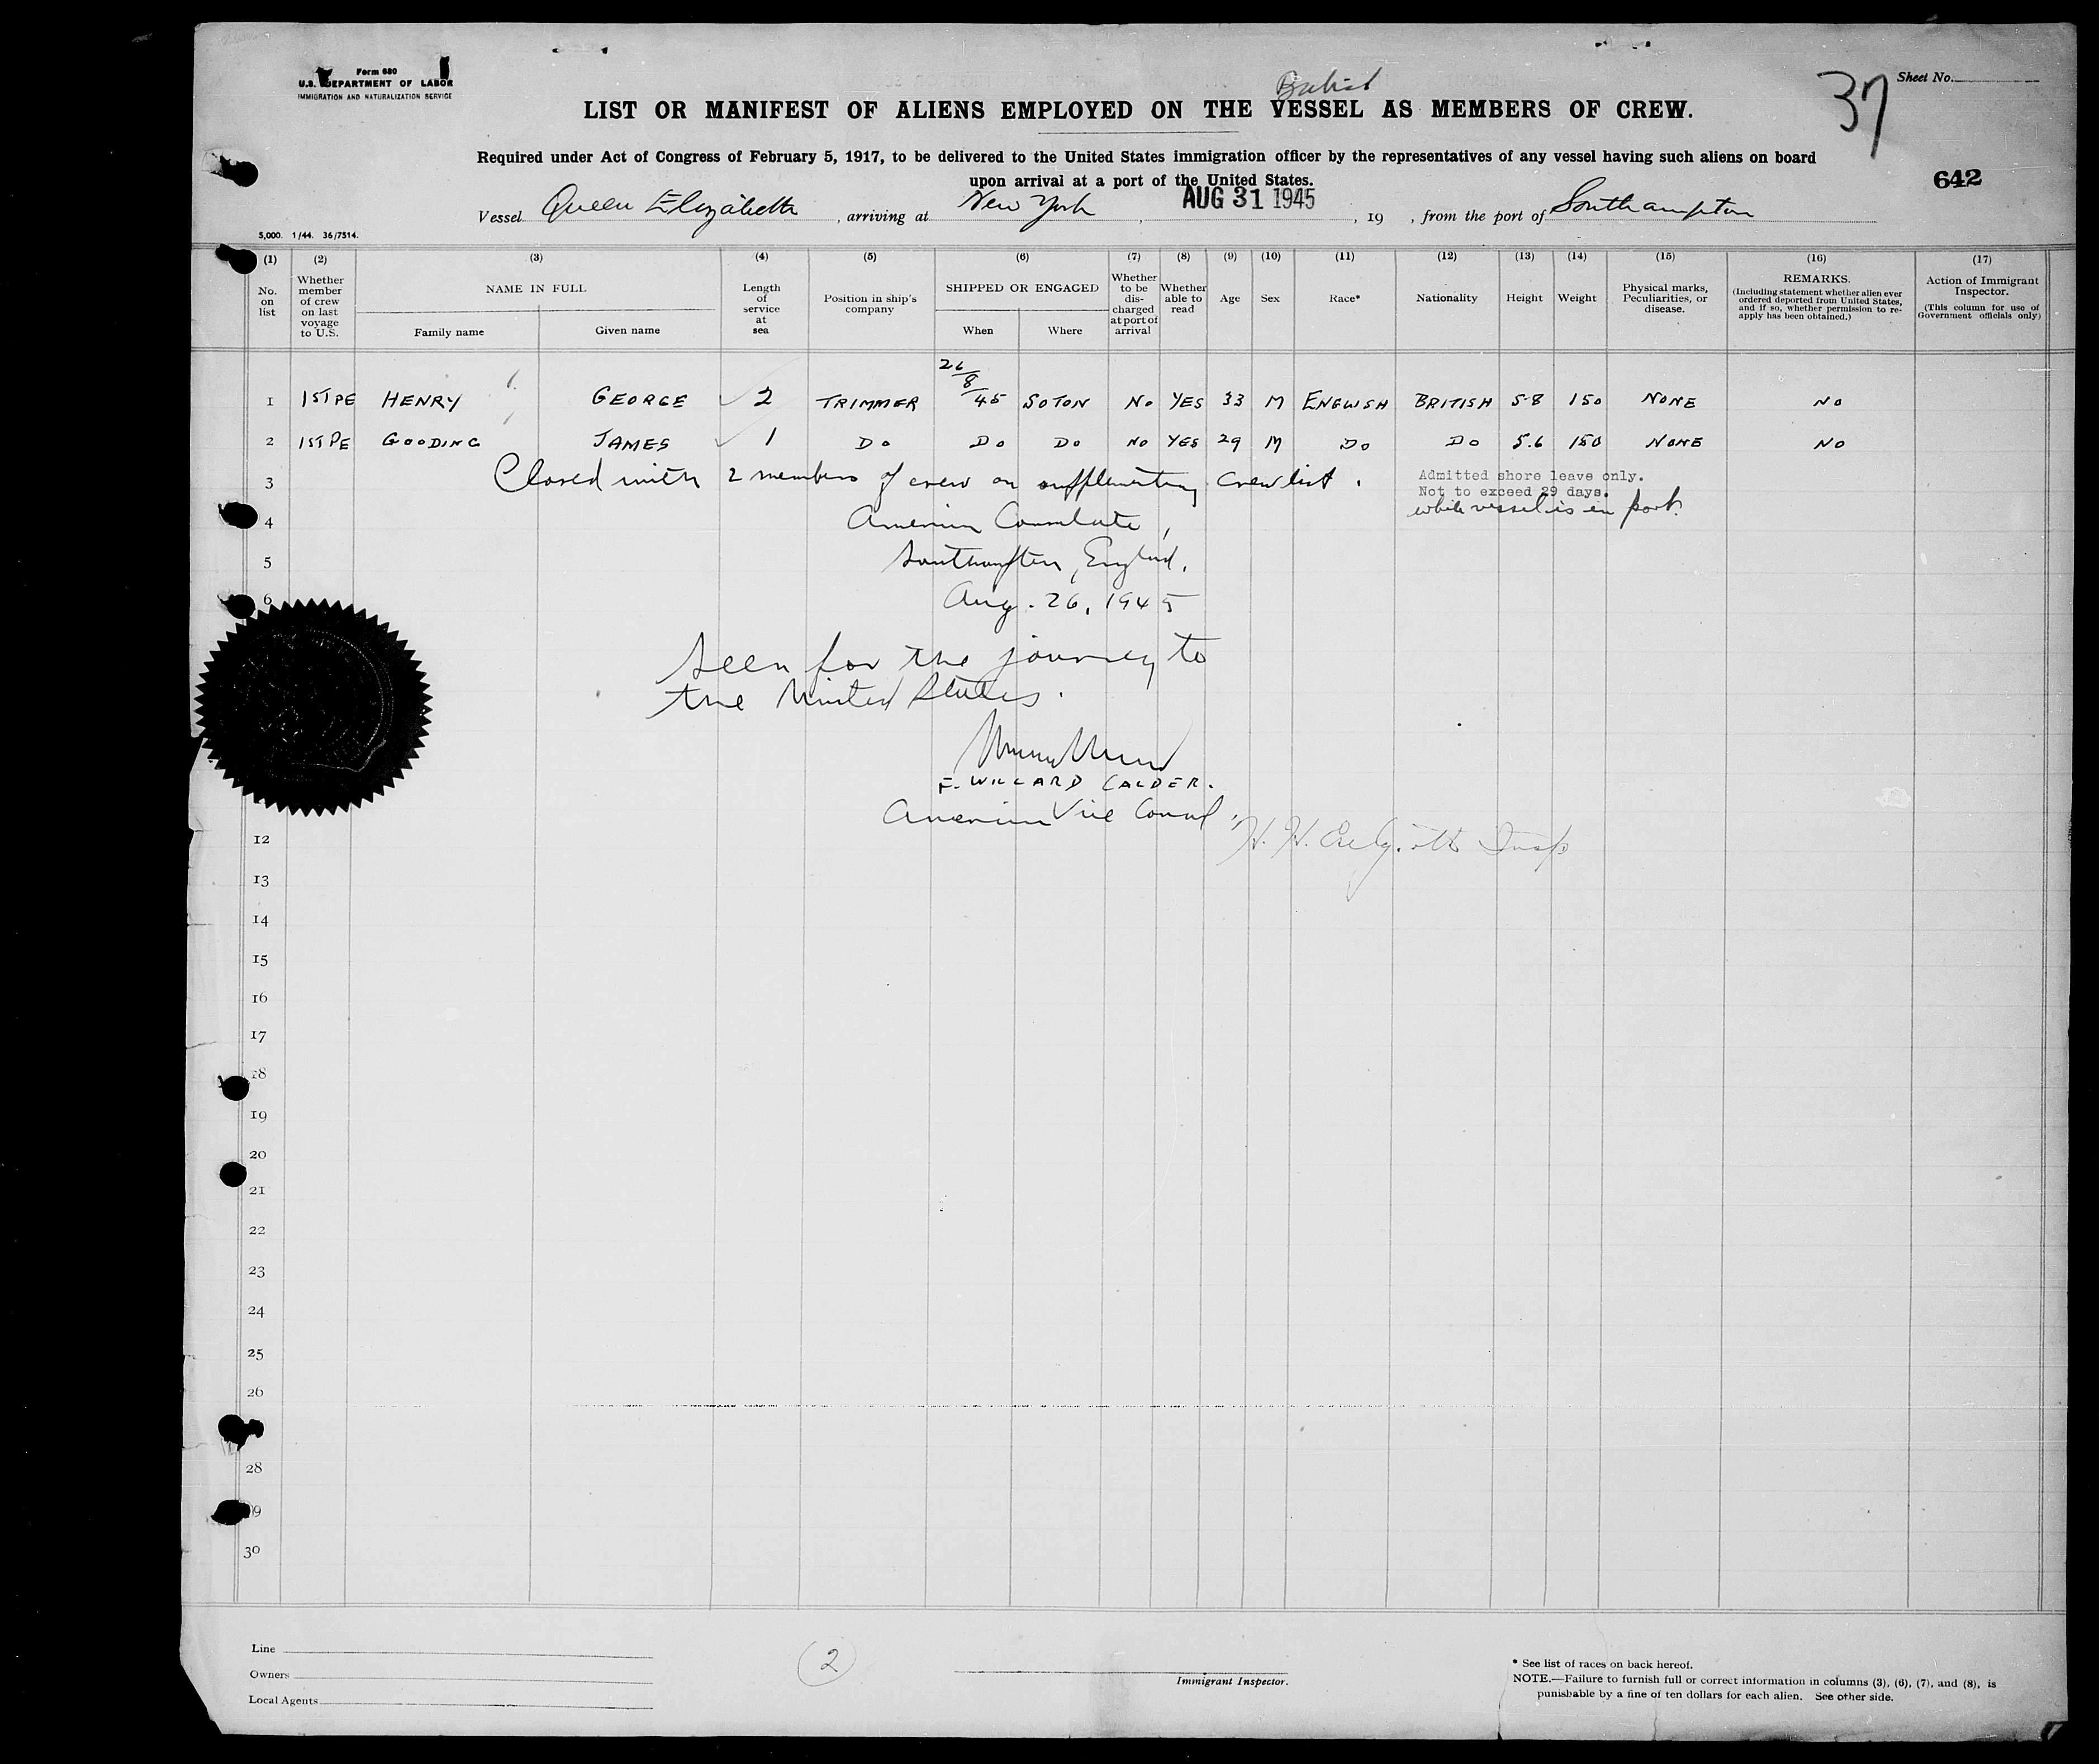 Form 680
U.S. DEPARTMENT OF LABOR
IMMIGRATION AND NATURALIZATION SERVICE
Sheet No.
37
British
LIST OR MANIFEST OF ALIENS EMPLOYED ON THE VESSEL AS MEMBERS OF CREW.
Required under Act of Congress of February 5, 1917, to be delivered to the United States immigration officer by the representatives of any vessel having such aliens on board
upon arrival at a port of the United States.
642
Vessel Queen Elizabeth, arriving at New York, AUG 31 1945, 19 , from the port of Southampton
5,000. 1/44. 36/7514.
(1) (2) (3) (4) (5) (6) (7) (8) (9) (10) (11) (12) (13) (14) (15) (16) (17)
No. on list
Whether member of crew on last voyage to U.S.
NAME IN FULL
Family name
Given name
Length of service at sea
Position in ship's company
SHIPPED OR ENGAGED
When
Where
Whether to be dis-charged at port of arrival
Whether able to read
Age
Sex
Race*
Nationality
Height
Weight
Physical marks, Peculiarities, or disease.
REMARKS.
(Including statement whether alien ever ordered deported from United States, and if so, whether permission to re-apply has been obtained.)
Action of Immigrant Inspector.
(This column for use of Government officials only)
1 1ST PE HENRY GEORGE 2 TRIMMER 26/8/45 SOTON NO YES 33 M ENGLISH BRITISH 5.8 150 NONE NO
2 1ST PE GOODING JAMES 1 DO DO DO NO YES 29 M DO DO 5.6 150 NONE NO
3 Closed with 2 members of crew on supplementary crew list.
Admitted shore leave only.
Not to exceed 29 days.
while vessel is in port.
4 American Consulate,
5 Southampton, England.
6 Aug. 26, 1945
Seen for the journey to
the United States.
F. WILLARD CALDER.
American Vice Consul.
12
13
14
15
16
17
18
19
20
21
22
23
24
25
26
28
29
30
Line
Owners
Local Agents
2
Immigrant Inspector.
* See list of races on back hereof.
NOTE.—Failure to furnish full or correct information in columns (3), (6), (7), and (8), is
punishable by a fine of ten dollars for each alien. See other side.